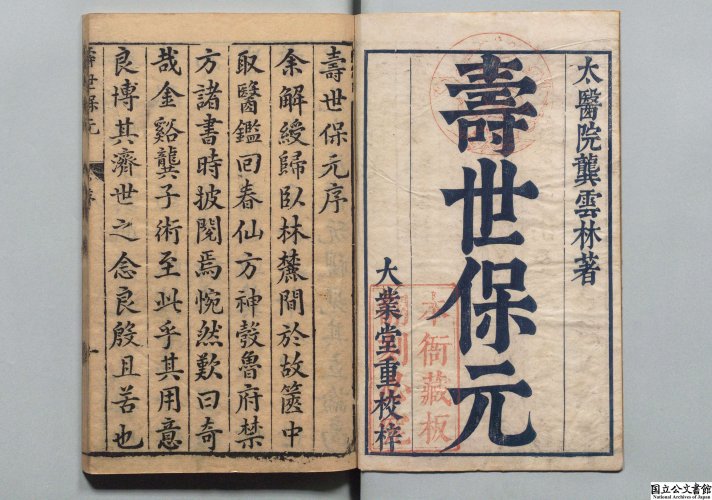 太醫院龔雲林著
壽世保元
大業堂重校梓
本衙藏板
壽世保元序
余解綬歸臥林麓間於故篋中
取醫鑑回春仙方神彀魯府禁
方諸書時披閱焉惋然歎曰奇
哉金谿龔子術至此乎其用意
良博其濟世之念良殷且苦也
壽世保元
序
一
国立公文書館
National Archives of Japan